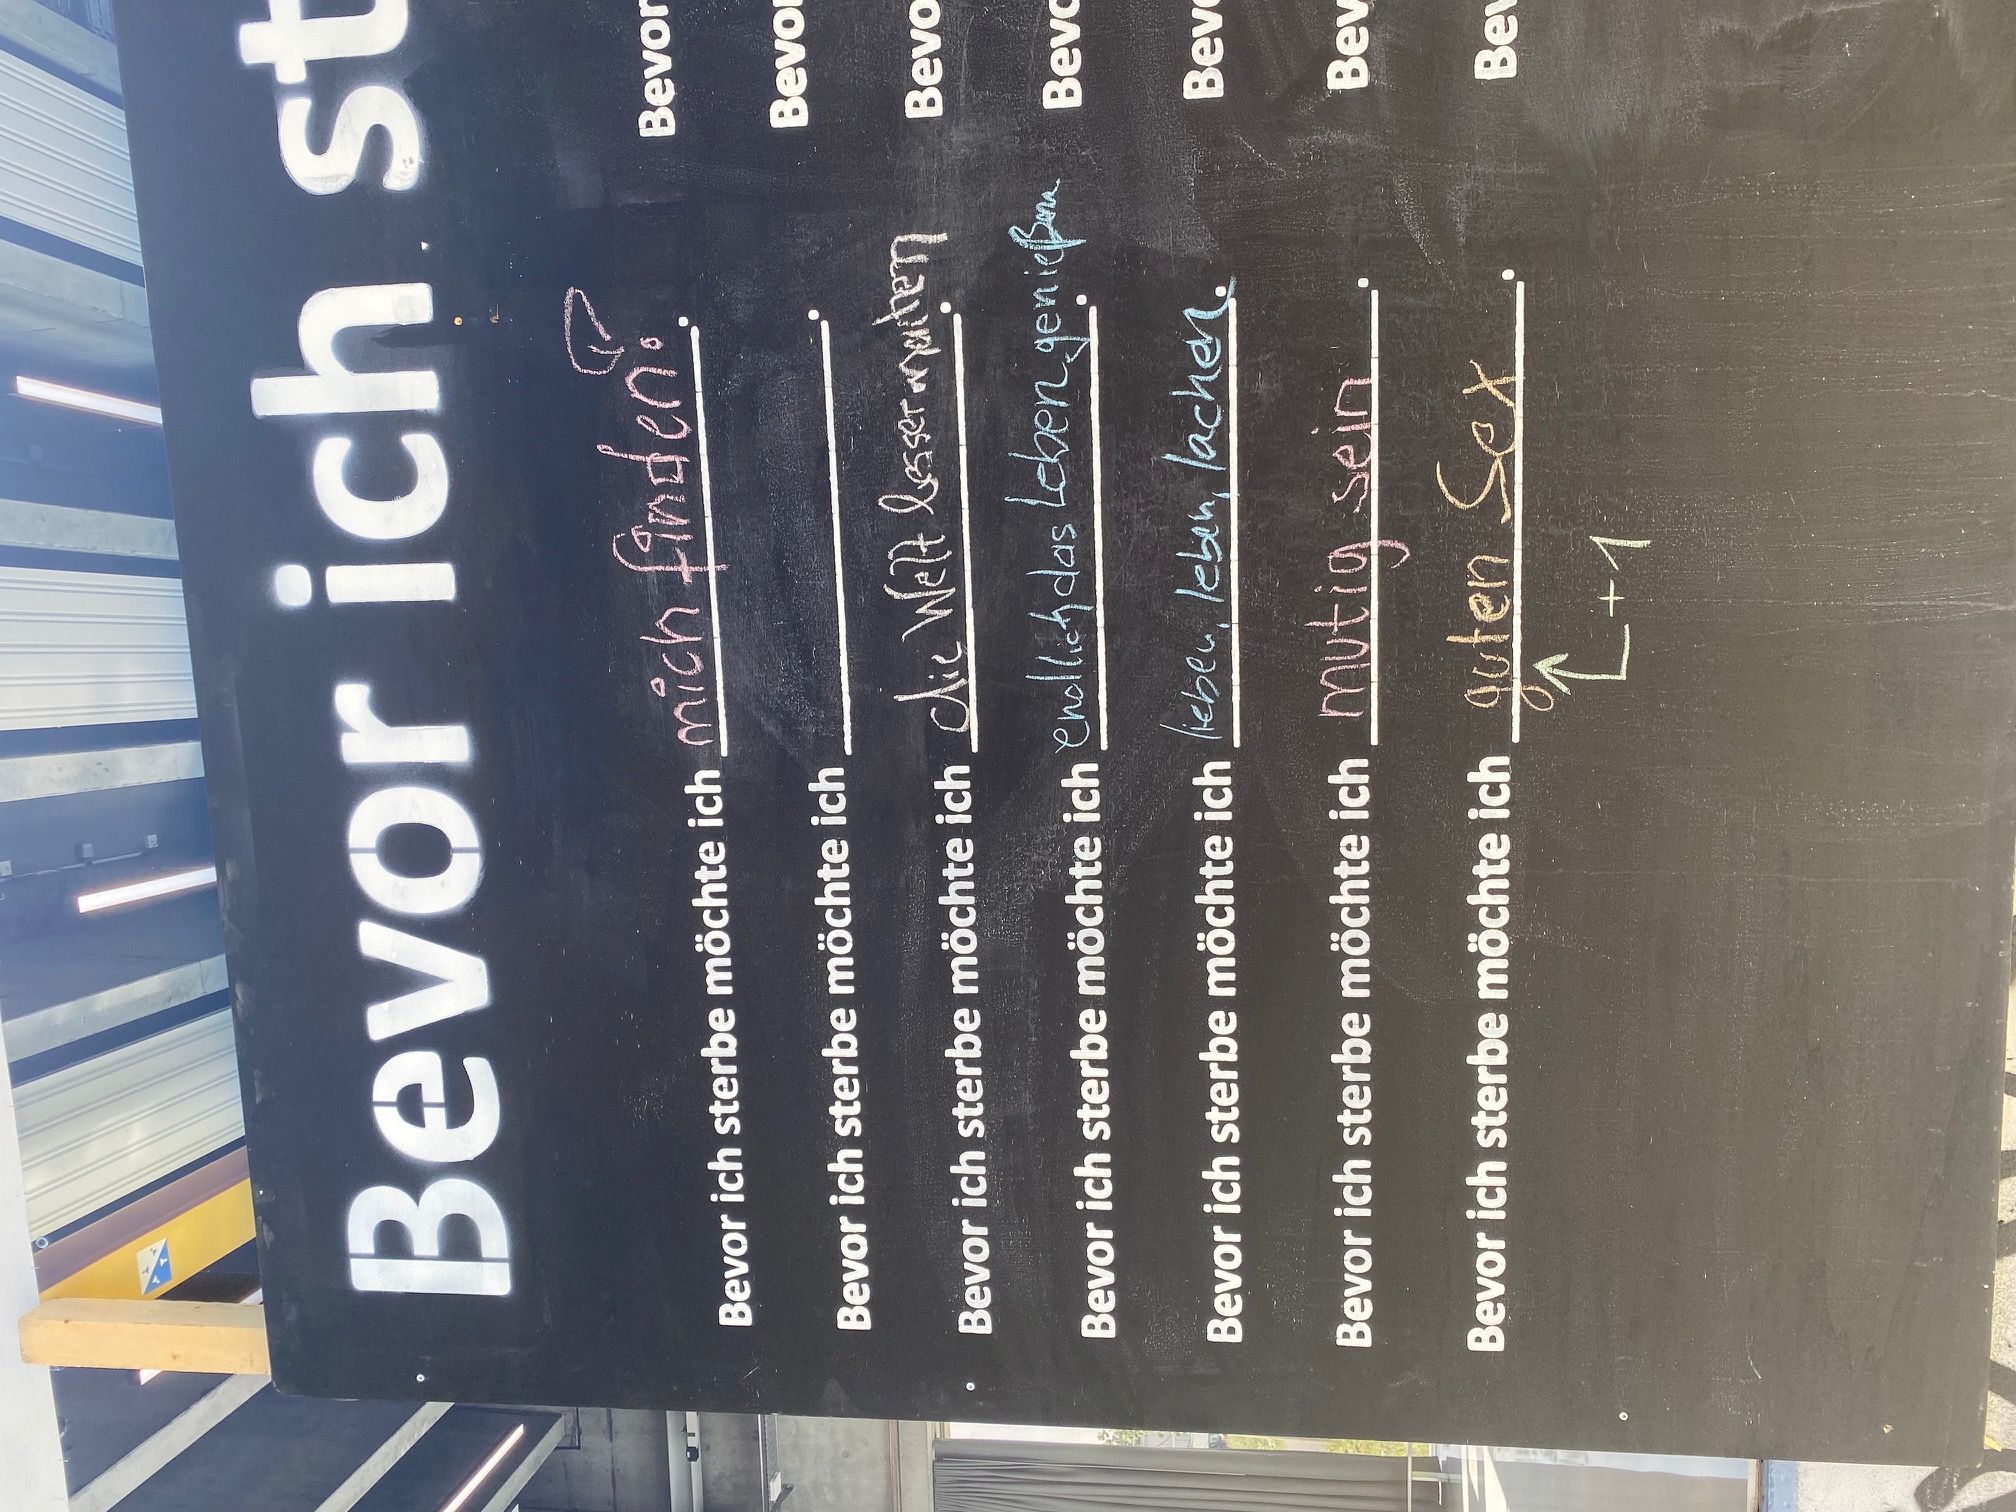 Bevor ich st
Bevor ich sterbe möchte ich mich finden.
Bevor ich sterbe möchte ich
Bevor ich sterbe möchte ich die Welt besser machen
Bevor ich sterbe möchte ich endlich das Leben genießen.
Bevor ich sterbe möchte ich lieben, leben, lachen.
Bevor ich sterbe möchte ich mutig sein
Bevor ich sterbe möchte ich guten Sex
+1
Bevor
Bevor
Bevo
Bevo
Bevo
Bev
Bev